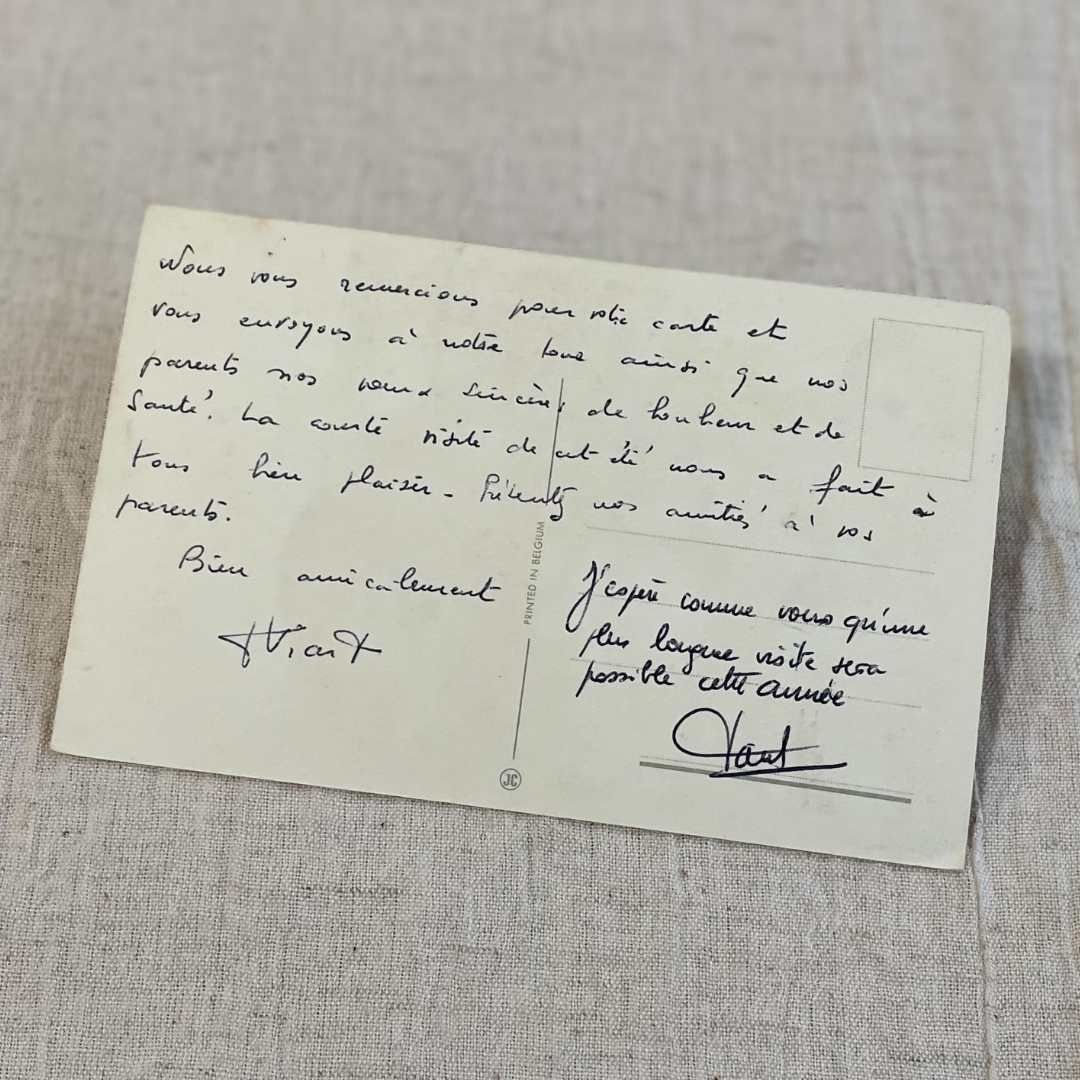 Nous vous remercions pour votre carte et
vous envoyons à notre tour ainsi que nos
parents nos voeux sincères de bonheur et de
Santé. La courte visite de cet été nous a fait à
tous bien plaisir - Présentez nos amitiés à vos
parents.
Bien amicalement
PRINTED IN BELGIUM
JC
J'espère comme vous qu'une
plus longue visite sera
possible cette année